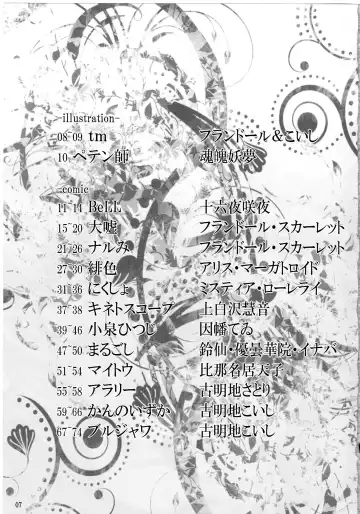 -illustration-
08-09 tm フランドール&こいし
10 ペテン師 魂魄妖夢
-comic
11-14 BeLL 十六夜咲夜
15-20 大嘘 フランドール・スカーレット
21-26 ナルみ フランドール・スカーレット
27-30 緋色 アリス・マーガトロイド
31-36 にくしょ ミスティア・ローレライ
37-38 キネトスコープ 上白沢慧音
39-46 小泉ひつじ 因幡てゐ
47-50 まるごし 鈴仙・優曇華院・イナバ
51-54 マイトウ 比那名居天子
55-58 アラリー 古明地さとり
59-66 かんのいずか 古明地こいし
67-74 ブルジャワ 古明地こいし
07